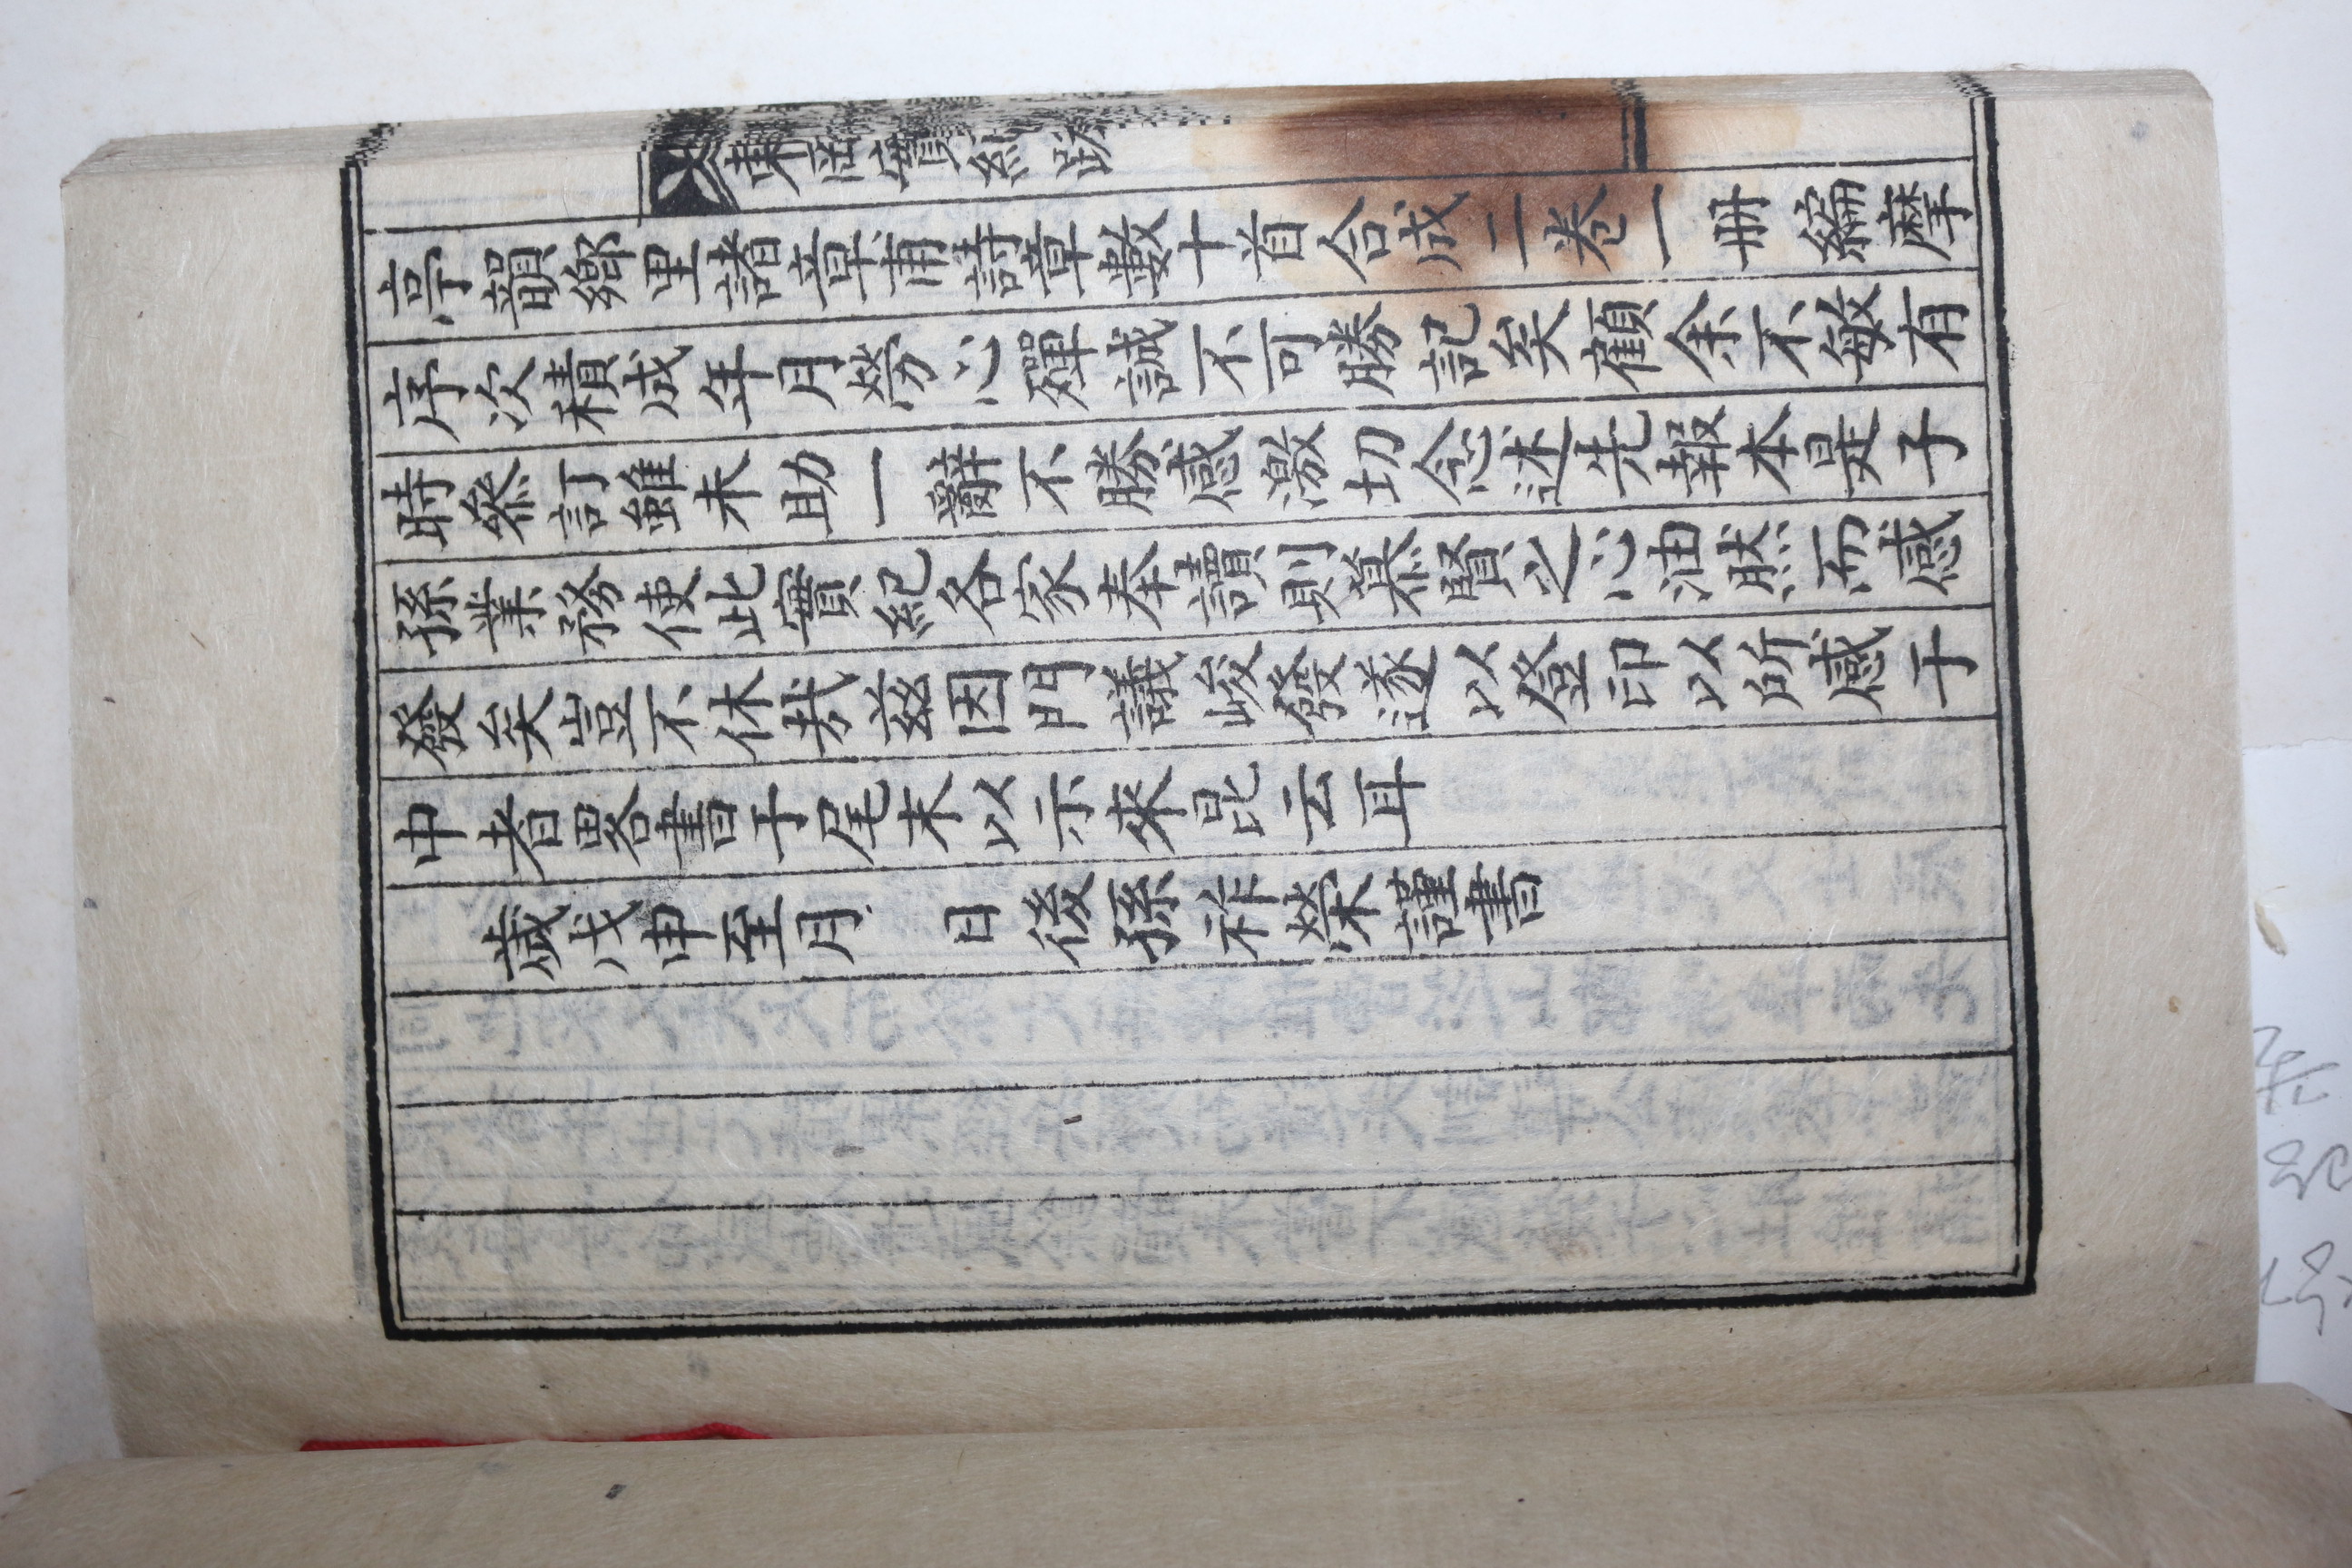 東岡實紀跋
亭韻鄉里諸章甫詩章數十首合成二卷一冊編摩
序次積成年月勞心殫誠不可勝記矣顧余不敏有
時叅訂雖未助一辭不勝感激切念述先報本是子
孫業務使此實紀各家奉讀則慕賢之心油然而感
發矣豈不休㢤兹因門議峻發遂以登印以所感于
中者畧書于尾末以示來昆云耳
歲戊申至月 日後孫祚榮謹書